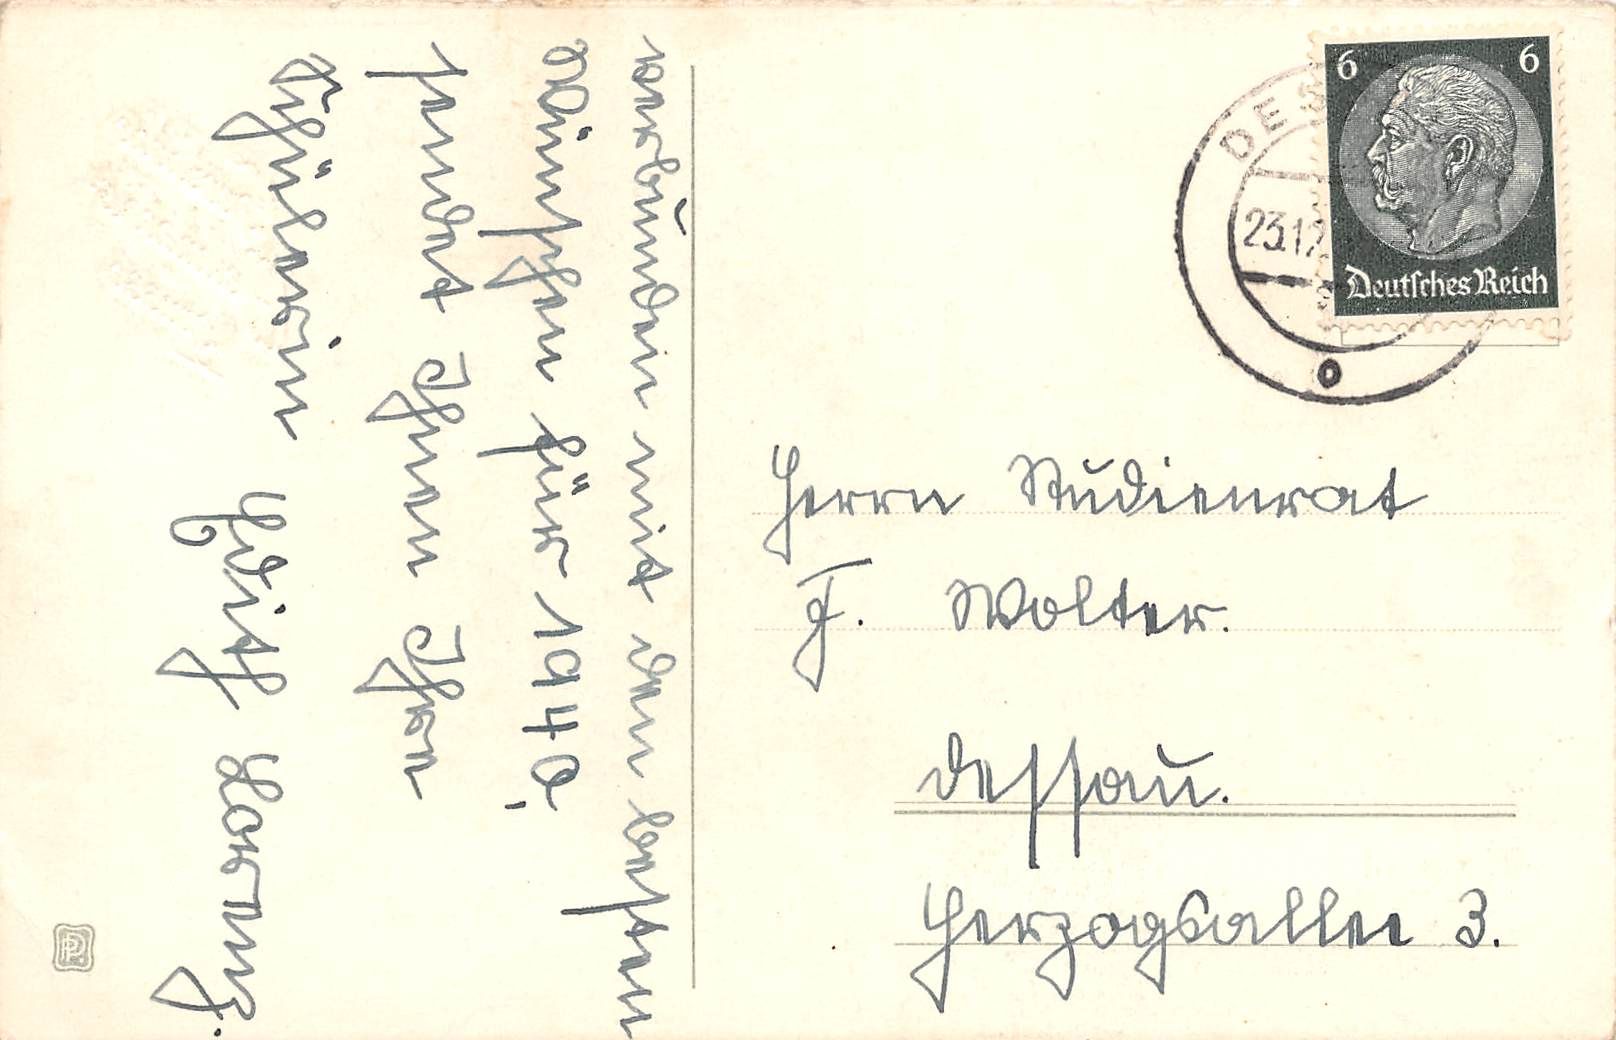 verbunden mit den besten
Wünschen für 1940,
sendet Ihnen Ihre
Schülerin
Edith
Herrn Studienrat
F. Wolter.
Dessau.
Herzogsallee 3.
6 6
Deutsches Reich
DES
23.12